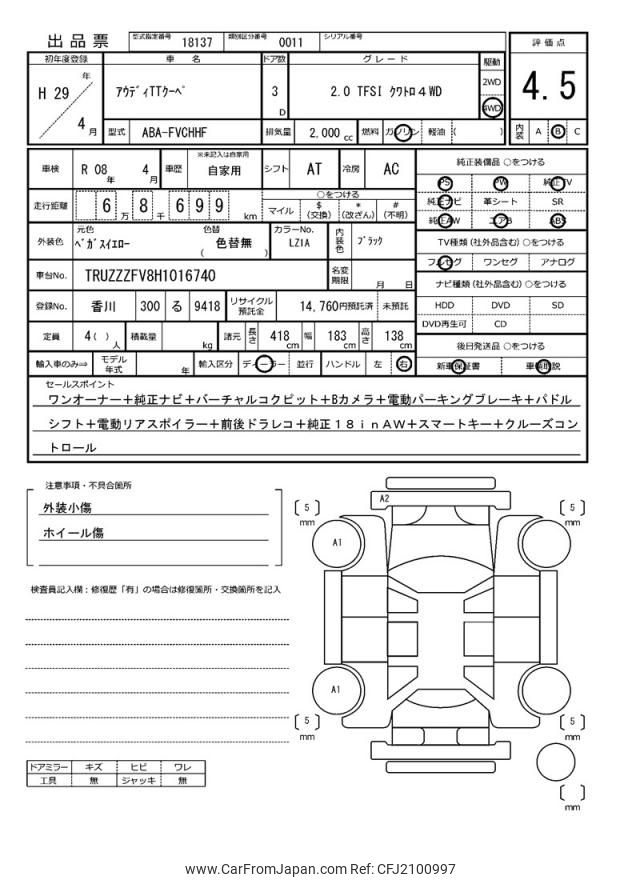 出品票 型式指定番号 18137 類別区分番号 0011 シリアル番号
初年度登録 車 名 ドア数 グレード 駆動 評価点
H 29 年 4 月 ｱｳﾃﾞｨTTｸｰﾍﾟ 3 D 2.0 TFSI ｸﾜﾄﾛ4WD 2WD 4WD 4.5
型式 ABA-FVCHHF 排気量 2,000 cc 燃料 ガソリン 軽油 ( ) 内装 A B C
車検 R 08 年 4 月 車歴 ※未記入は自家用 自家用 シフト AT 冷房 AC 純正装備品 ○をつける
PS PW 純正TV
走行距離 6 万 8 千 6 9 9 km ○をつける マイル $ (交換) * (改ざん) # (不明) 純正ナビ 革シート SR
純正AW エアB ABS
外装色 元色 ﾍﾞｶﾞｽｲｴﾛｰ 色替 ( 色替無 ) カラーNo. LZ1A 内装色 ﾌﾞﾗｯｸ TV種類(社外品含む) ○をつける
フルセグ ワンセグ アナログ
車台No. TRUZZZFV8H1016740 名変期限 月 日 ナビ種類(社外品含む) ○をつける
登録No. 香川 300 る 9418 リサイクル預託金 14,760円預託済 未預託 HDD DVD SD
DVD再生可 CD
定員 4( ) 人 積載量 kg 諸元 長さ 418 cm 幅 183 cm 高さ 138 cm 後日発送品 ○をつける
輸入車のみ⇒ モデル年式 年 輸入区分 ディーラー 並行 ハンドル 左 右 新車保証書 車輌取説
セールスポイント
ワンオーナー＋純正ナビ＋バーチャルコクピット＋Bカメラ＋電動パーキングブレーキ＋パドル
シフト＋電動リアスポイラー＋前後ドラレコ＋純正１８ｉｎAW＋スマートキー＋クルーズコン
トロール
注意事項・不具合箇所
外装小傷
ホイール傷
検査員記入欄：修復歴「有」の場合は修復箇所・交換箇所を記入
ドアミラー キズ ヒビ ワレ
工具 無 ジャッキ 無
5 mm A2 5 mm
A1
A1
5 mm 5 mm
mm
www.CarFromJapan.com Ref: CFJ2100997